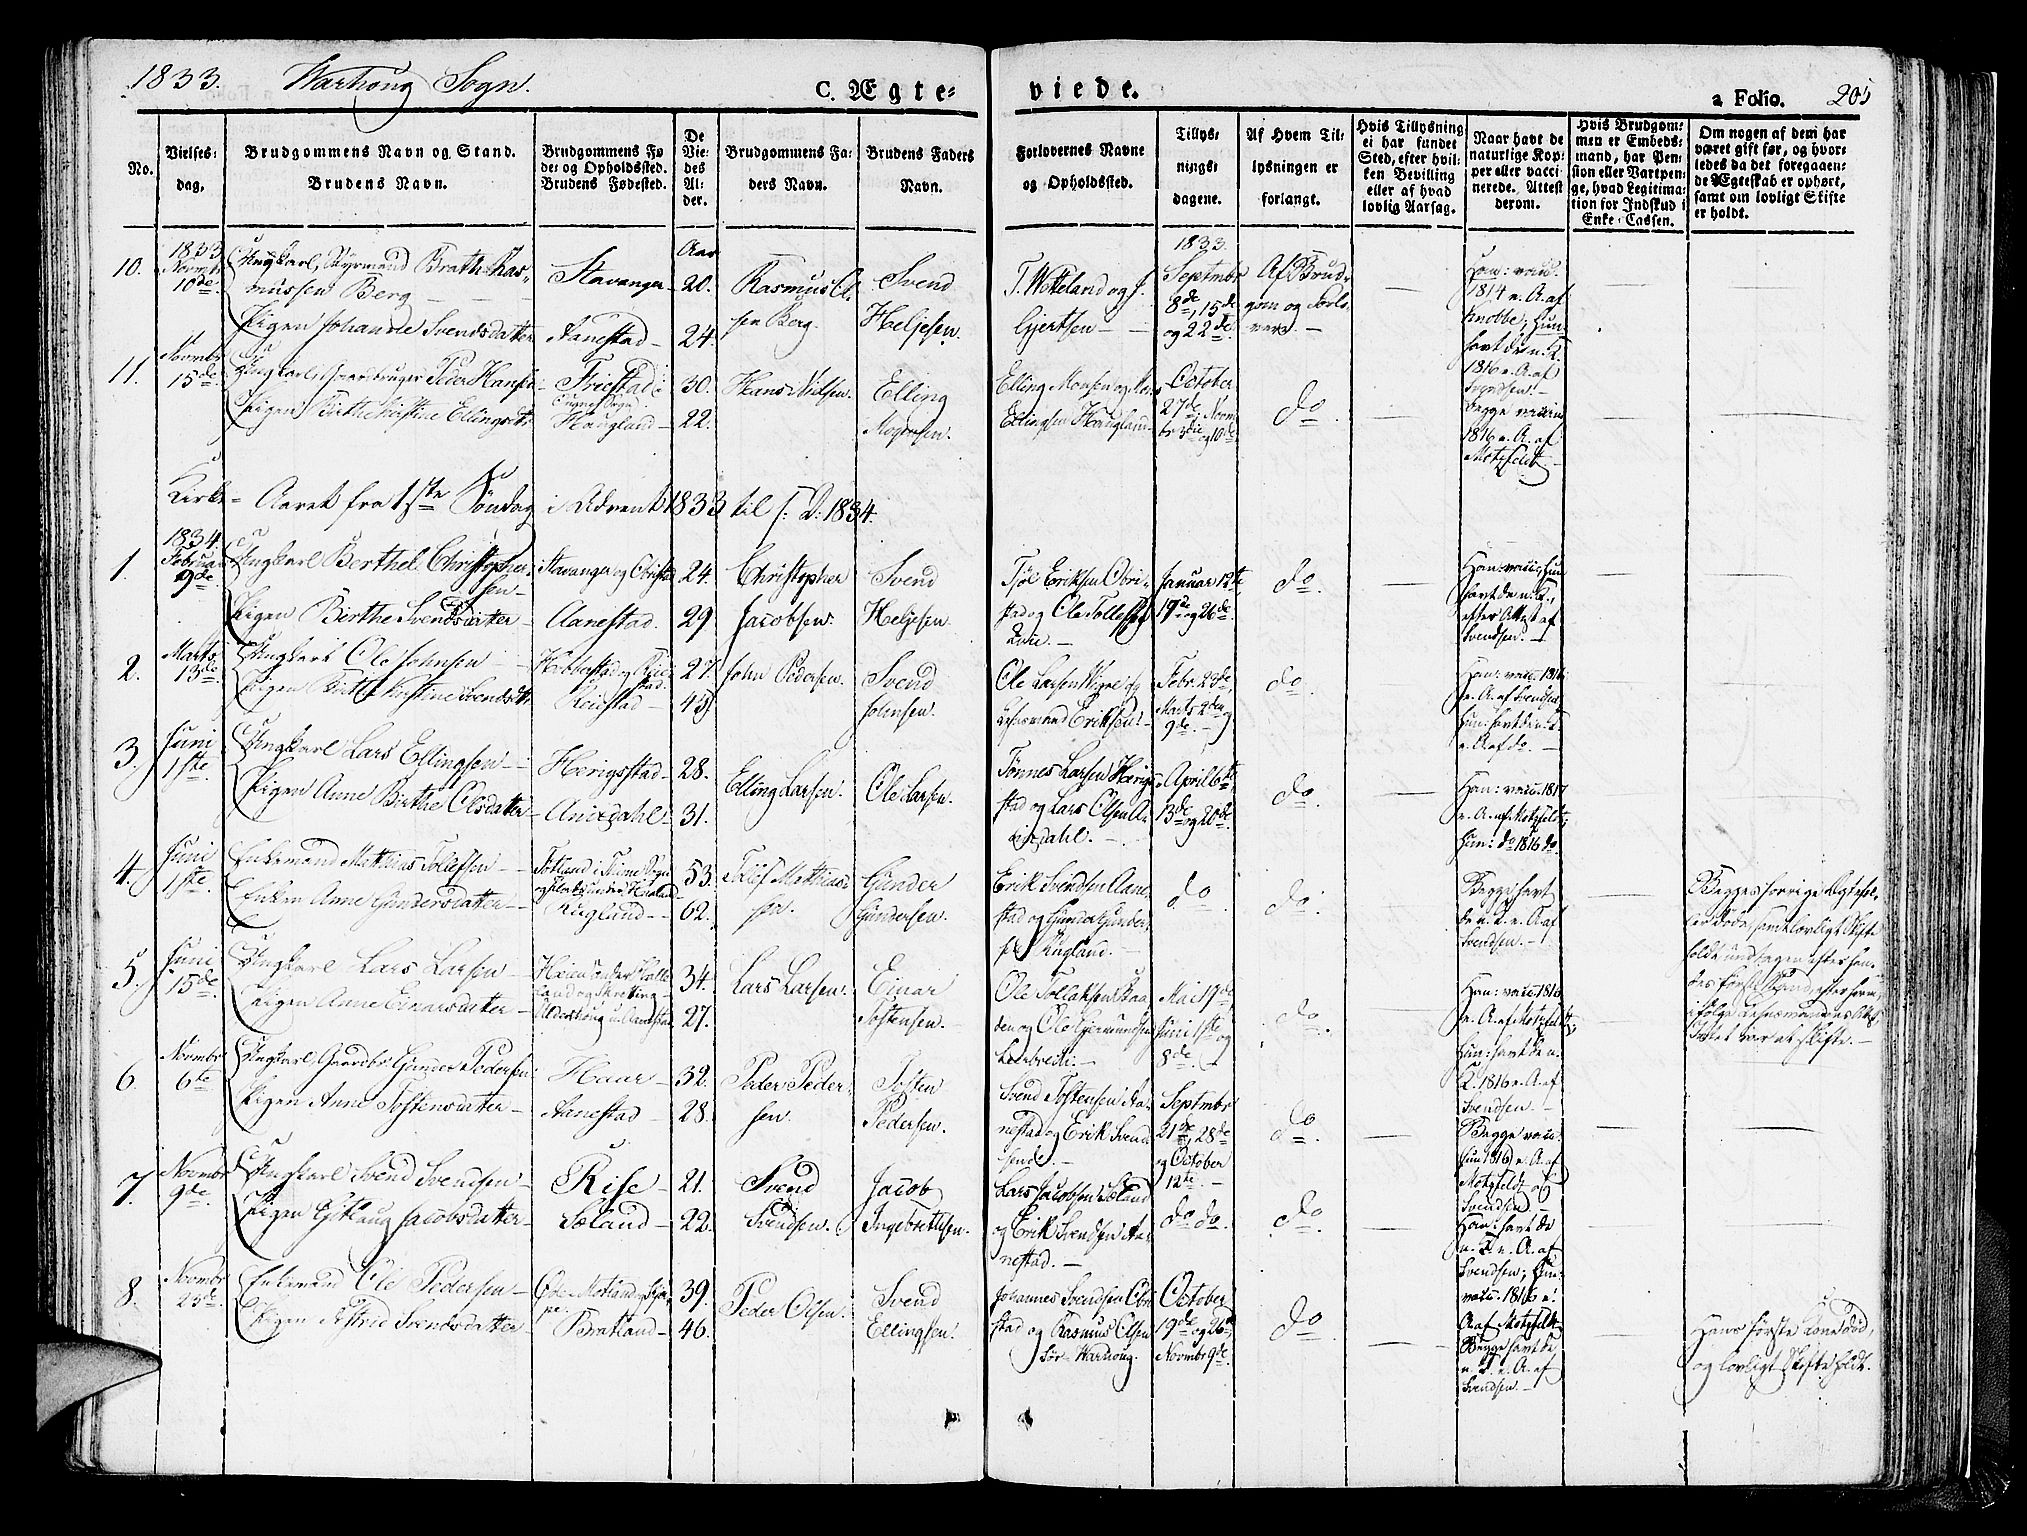 1833. Warhoug Sogn.
C. Ægte-
viede.
a Folio. 205
No.
Vielses-
dag.
Brudgommens Navn og Stand.
Brudens Navn.
Brudgommens Fø
de- og Opholdssted.
Brudens Fødested.
De
Vie-
des
Al-
der.
Brudgommens Fa-
ders Navn.
Brudens Faders
Navn.
Forlovernes Navne
og Opholdssted.
Tillys-
nings-
dagene.
Af Hvem Til-
lysningen er
forlangt.
Hvis Tillysning
ei har fundet
Sted, efter hvil-
ken Bevilling
eller af hvad
lovlig Aarsag.
Naar havt de
naturlige Kop-
per eller vacci
nerede. Attest
derom.
Hvis Brudgom-
men er Embeds-
mand, har Pen-
sion eller Vartpen-
ge, hvad Legitima-
tion for Indskud i
Enke-Cassen.
Om nogen af dem har
været gift før, og hvor-
ledes da det foregaaen-
de Ægteskab er ophørt,
samt om lovligt Skifte
er holdt.
10.
1833
Novmbr
10de
Ungkarl, Styrmand Brath Ras-
mussen Berg
Pigen Johanne Svendsdatter
Stavanger
Aanestad
Aar
20.
24.
Rasmus Ol
sen Berg.
Svend
Heljesen.
T. Wetteland og J.
Gjertsen
1833.
Septmbr
8de, 15de
og 22de
Af Brud-
gom og Forlo-
vere
Han: vacc.
1814 e. A. af
Knobbe; Hun
havt de n. K.
1816 e. A. af
11.
Novmbr
15de
Ungkarl, Gaardbruger Peder Hansen
Pigen Birthe Kirstine Ellingsdtr
Friestad i
Haugland
30.
22.
Hans Nilsen.
Elling
Mogensen.
Elling Monsen og
Ellingsen Haugland
October
27de, Novm
br 3die og 10de
do
Begge vaccin
1816 e. A. af
Motzfeldt
Kirke-Aaret fra 1ste Søndag i Advent 1833 til S: D: 1834.
1.
1834
Februar
9de
Ungkarl Berthel Christopher-
sen
Pigen Birthe Svendsdatter
Stavanger og Obrestad
Aanestad.
24.
29
Christopher
Jacobsen.
Svend
Heljesen.
Tjøl Eriksen Obre-
stad og Ole Tollefsen
Januar 12te
19de og 26de
do
Han: vacc; Hun
havt de n. K.,
efter Attest af
Svendsen.
2.
Marts
13de
Ungkarl Ole Johnsen
Pigen Birthe Kirstine Svendsdtr
27.
43
John Pedersen.
Svend
Johnsen.
Ole Larsen Wigre og
Lehnsmand Eriksen.
Febr. 23de,
Marts 2den og
9de.
do
Han: vacc. 1816
e. A. af Svendsen
Hun: havt de n. K.
e. A. af do.
3.
Juni
1ste
Ungkarl Lars Ellingsen
Pigen Anne Birthe Olsdatter
Herigstad
Anisdahl
28.
31.
Elling Larsen.
Ole Larsen
Tønnes Larsen Herig-
stad og Lars Olsen A-
nisdahl.
April 6te
13de og 20de
do
Han: vacc. 1817
e. A. af Motzfeldt;
Hun: do 1816 do.
4.
Juni
1ste
Enkemand Mathias Tollefsen
Enken Anne Gundersdatter
Rugland
53.
62.
Tolef Mathias-
sen.
Gunder
Gundersen.
Erik Svendsen Aane-
stad og Gunder Gunder-
sen Rugland.
do
do
Begge havt
de n. K. e. A. af
Svendsen.
Begges forrige Ægtefæl-
ler døde, samt lovligt Skifte
holdt undtagen efter hen-
des første Mand, efter hvem,
ifølge Lehnsmandens Att.
Intet var at skifte.
5.
Juni
15de
Ungkarl Lars Larsen
Pigen Anne Einarsdatter
34.
27.
Lars Larsen.
Einar
Tostensen.
Ole Tollaksen Baa-
den og Ole Gjermundsen
Mai 19de,
Juni 1ste og
8de
do
Han: vacc. 1816
e. A. af Motzfeldt;
Hun: havt de n.
K. 1816 e. A. af
Svendsen.
6.
Novmbr
6te
Ungkarl Gaardbr. Gunder Pedersen
Pigen Anne Tostensdatter
Haar
Aanestad
32.
28.
Peder Peder-
sen.
Tosten
Pedersen.
Svend Tostensen Aa-
nestad og Erik Svend-
sen
Septmbr
21de, 28de
og October
12te.
do
Begge vacc.
Hun 1816 e. A. af
Motzfeldt og
Svendsen
7.
Novmbr
9de
Ungkarl Svend Svendsen
Pigen Gitlaug Jacobsdatter
Rise
Sæland
21.
22.
Svend
Svendsen.
Jacob
Ingebretsen.
Lars Jacobsen Sæland
og Erik Svendsen Aa-
nestad.
do do.
do
Han: havt de
n. K. e. A. af
Svendsen; Hun-
vacc. 1816 e.
A. af Motzfeldt
8.
Novmbr
23de
Enkemand Ole Pedersen
Pigen Astrid Svendsdatter
Bratland
39.
46.
Peder Olsen.
Svend
Ellingsen.
Johannes Svendsen Obre-
stad og Rasmus Olsen
Sør-Warhoug.
October
19de og 26de
Novmbr 9de.
do
Begge havt de
n. K. e. A. af
Svendsen.
Hans første Kone død,
og lovligt Skifte holdt.